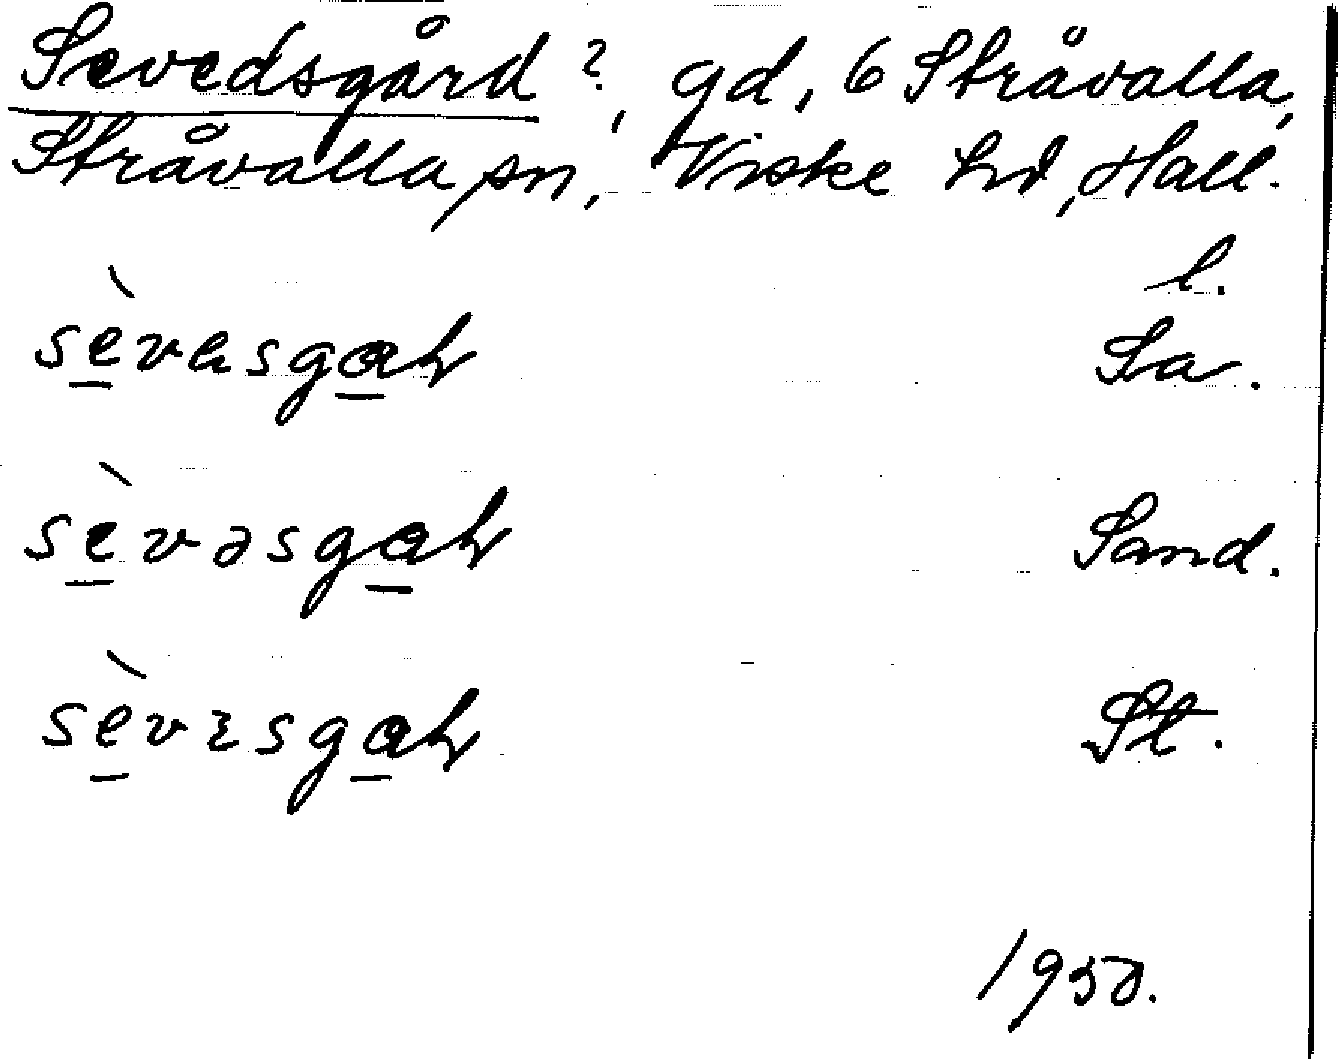 Sevedsgård?, gd, 6 Stråvalla,
Stråvalla sn, Viske hd, Hall.
l.
Sa.
sèvəsgar Sand.
St.
1950.